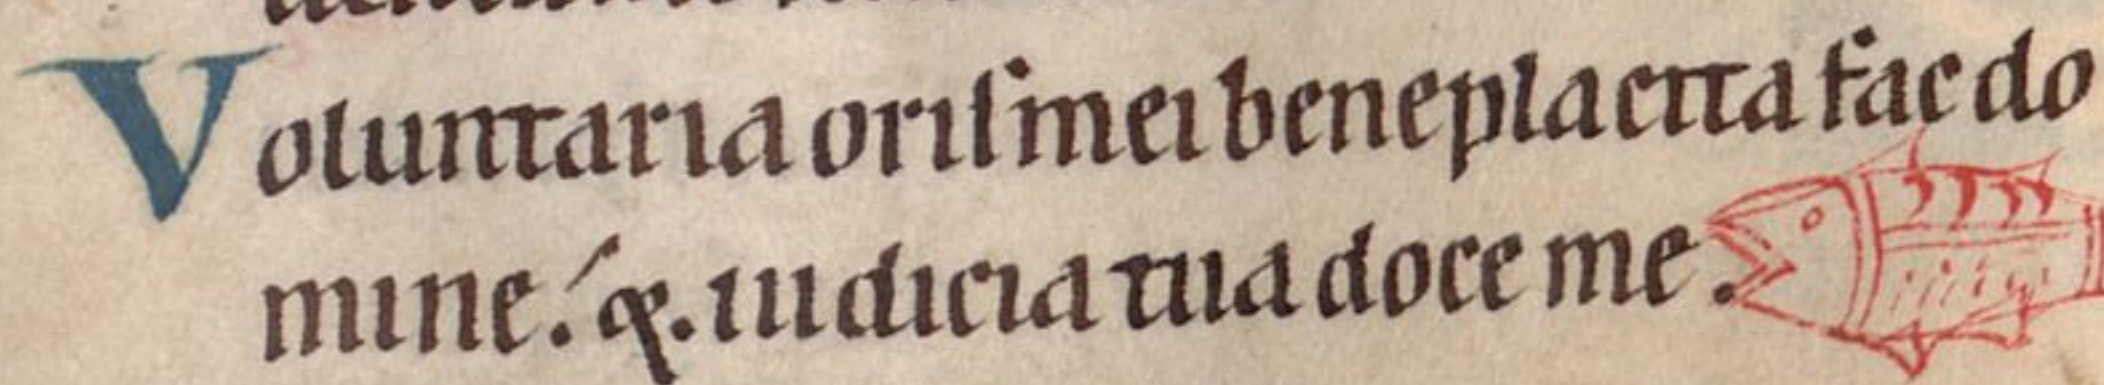 Voluntaria oriſ mei beneplacita fac do
mine. ꝙ. iudicia tua doce me.